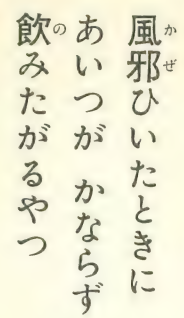 風邪ひいたときに
あいつが かならず
飲みたがるやつ